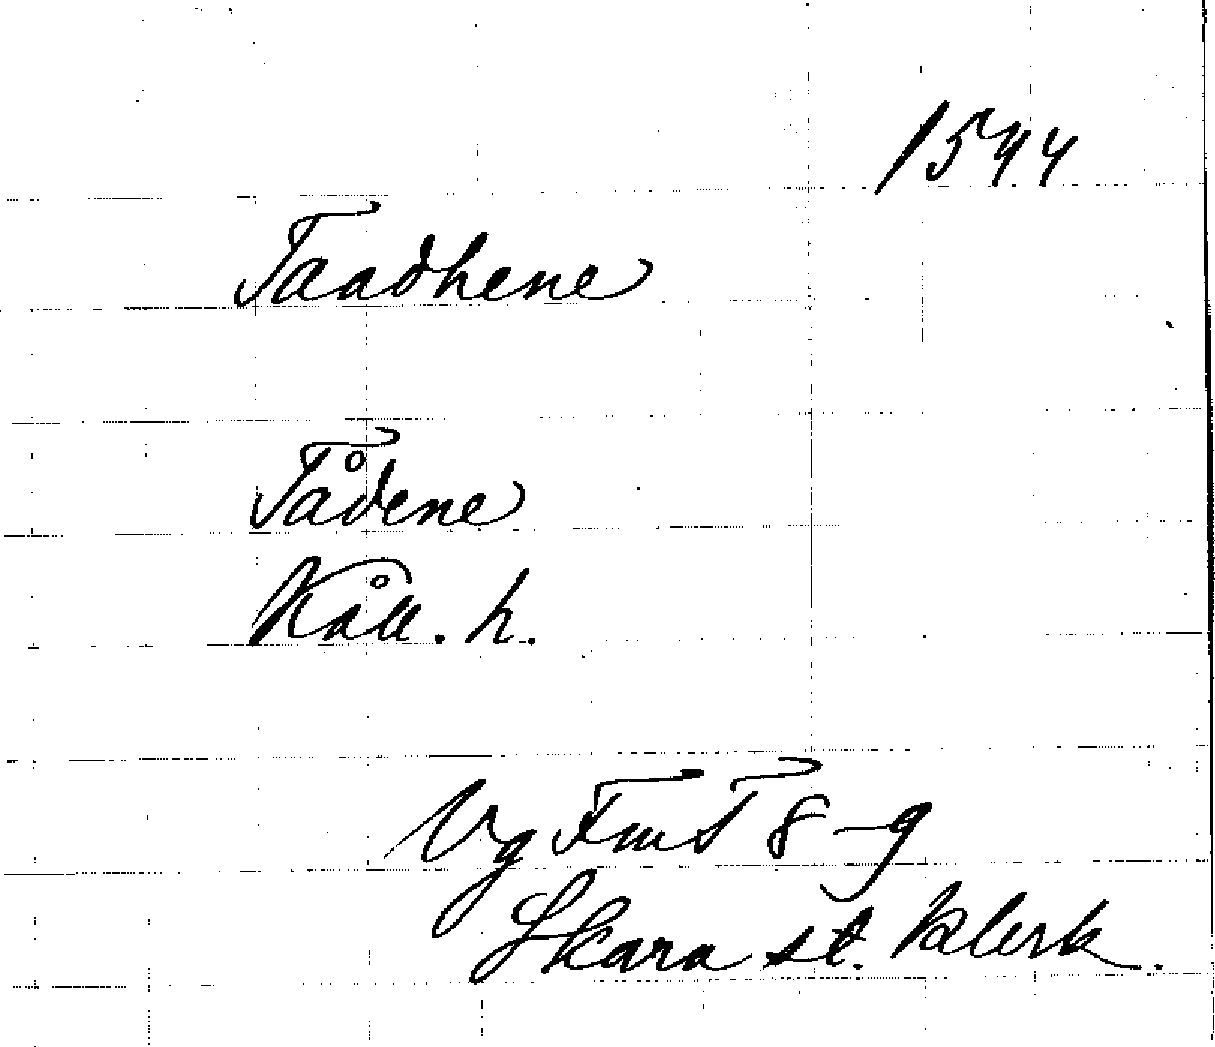 1544
Taadhene
Tådene
Kåll. h.
Vg FmT 8-9
Skara st. klerk.